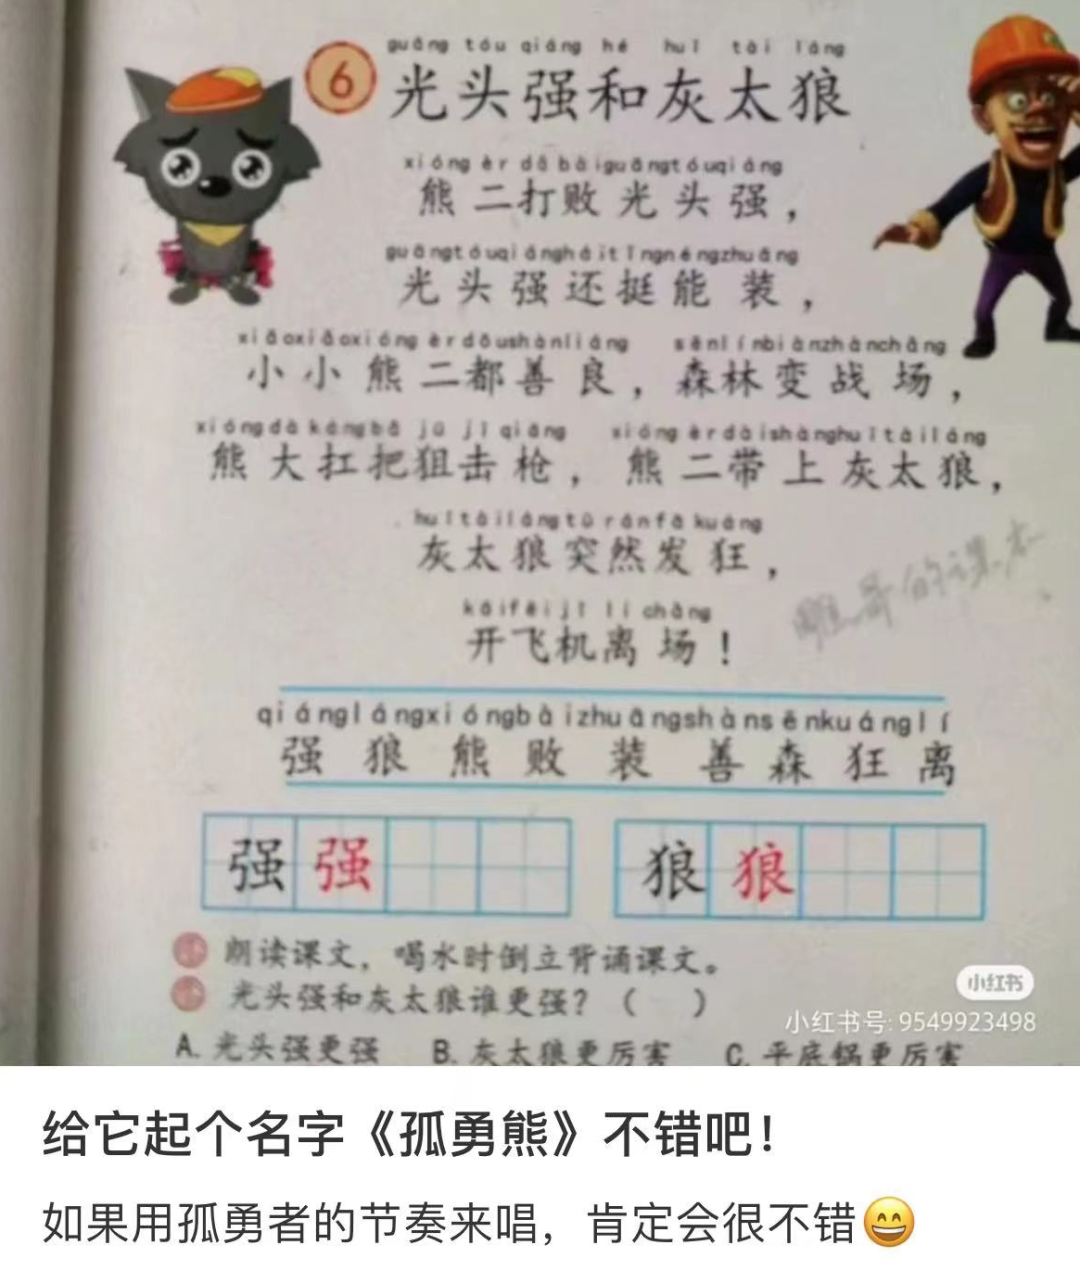 guāng tóu qiáng hé huī tài láng
6 光头强和灰太狼
xióng èr dǎ bàiguāngtóuqiáng
熊二打败光头强，
guāngtóuqiángháitǐngnéngzhuāng
光头强还挺能装，
xiǎoxiǎoxióng èrdōushànliáng sēnlínbiànzhànchǎng
小小熊二都善良，森林变战场，
xióngdà kángbǎ jū jī qiāng xióng èrdàishànghuītàiláng
熊大扛把狙击枪，熊二带上灰太狼，
huītàilángtūránfākuáng
灰太狼突然发狂，
kāifēijī lí chǎng
开飞机离场！
的课本
qiánglángxióngbàizhuāngshànsēnkuánglí
强狼熊败装善森狂离
强强 狼狼
朗读课文，喝水时倒立背诵课文。
光头强和灰太狼谁更强？（ ）
A.光头强更强 B.灰太狼更厉害 C.平底锅更厉害
小红书
小红书号: 9549923498
给它起个名字《孤勇熊》不错吧！
如果用孤勇者的节奏来唱，肯定会很不错😄